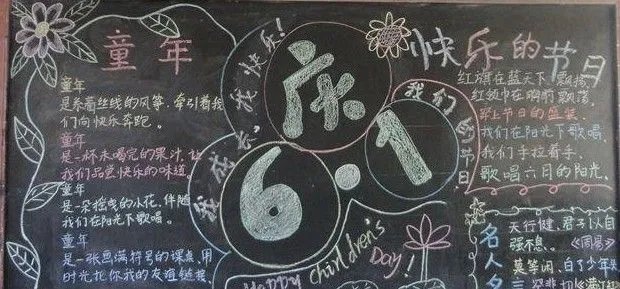 童年
童年
是系着丝线的风筝，牵引着我
们向快乐奔跑。
童年
是一杯未喝完的果汁，让
我们品尝快乐的味道
童年
是一朵摇曳的小花，伴随
我们在阳光下歌唱。
童年
是一张画满符号的课桌，用
时光把你我的友谊链接
我成长，我快乐！
庆
6·1
我们的节日
Happy Children's
Day!
快乐的节日
红旗在蓝天下飘扬，
红领巾在胸前飘荡，
穿上节日的盛装，
我们在阳光下歌唱，
我们手拉着手，
歌唱六月的阳光。
名人名
天行健，君子以自
强不息。《周易》
莫等闲，白了少年头
空悲切《满江红